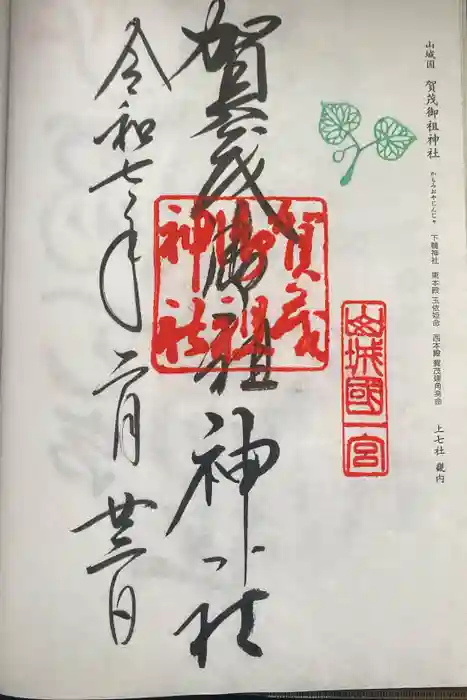 山城国 賀茂御祖神社 かもみおやじんじゃ 下鴨神社 東本殿 玉依姫命 西本殿 賀茂建角身命 上七社 畿内
山城國一宮
賀茂御祖神社
賀茂御祖神社
令和七年二月廿三日